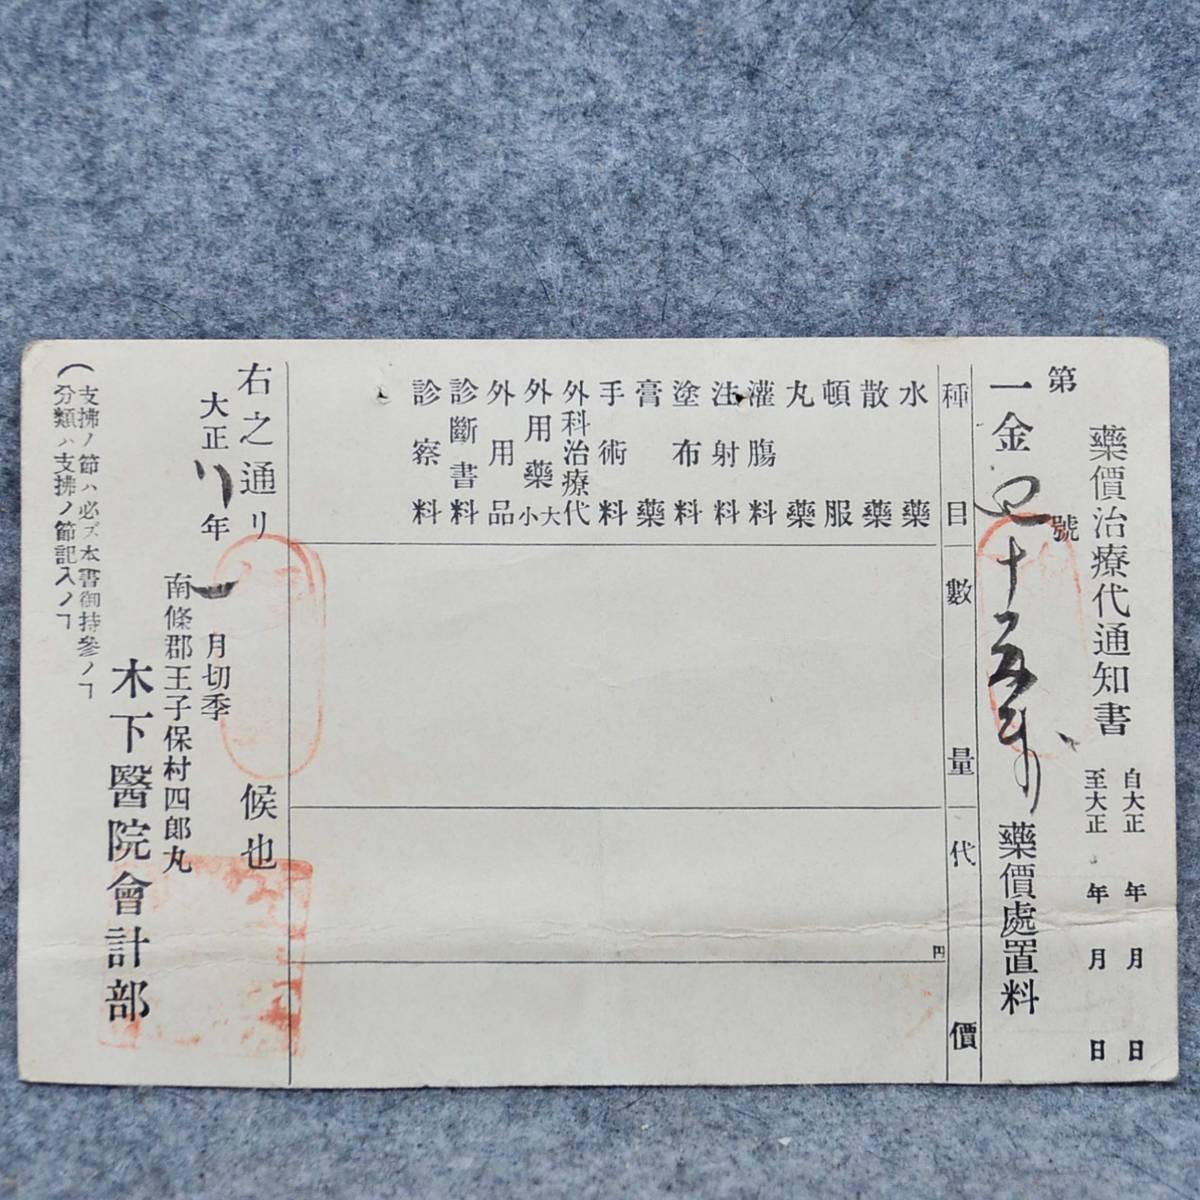 藥價治療代通知書
自大正 年 月 日
至大正 年 月 日
第 號
一金 四十五戔 藥價處置料
種目 數量 代價
円
水藥
散藥
頓服
丸藥
灌膓料
注射料
塗布料
膏藥
手術料
外科治療代
外用藥大小
外用品
診斷書料
診察料
右之通リ 候也
大正 八年 一月切季
南條郡王子保村四郎丸
木下醫院會計部
(支拂ノ節ハ必ズ本書御持參ノヿ
分類ハ支拂ノ節記入ノヿ